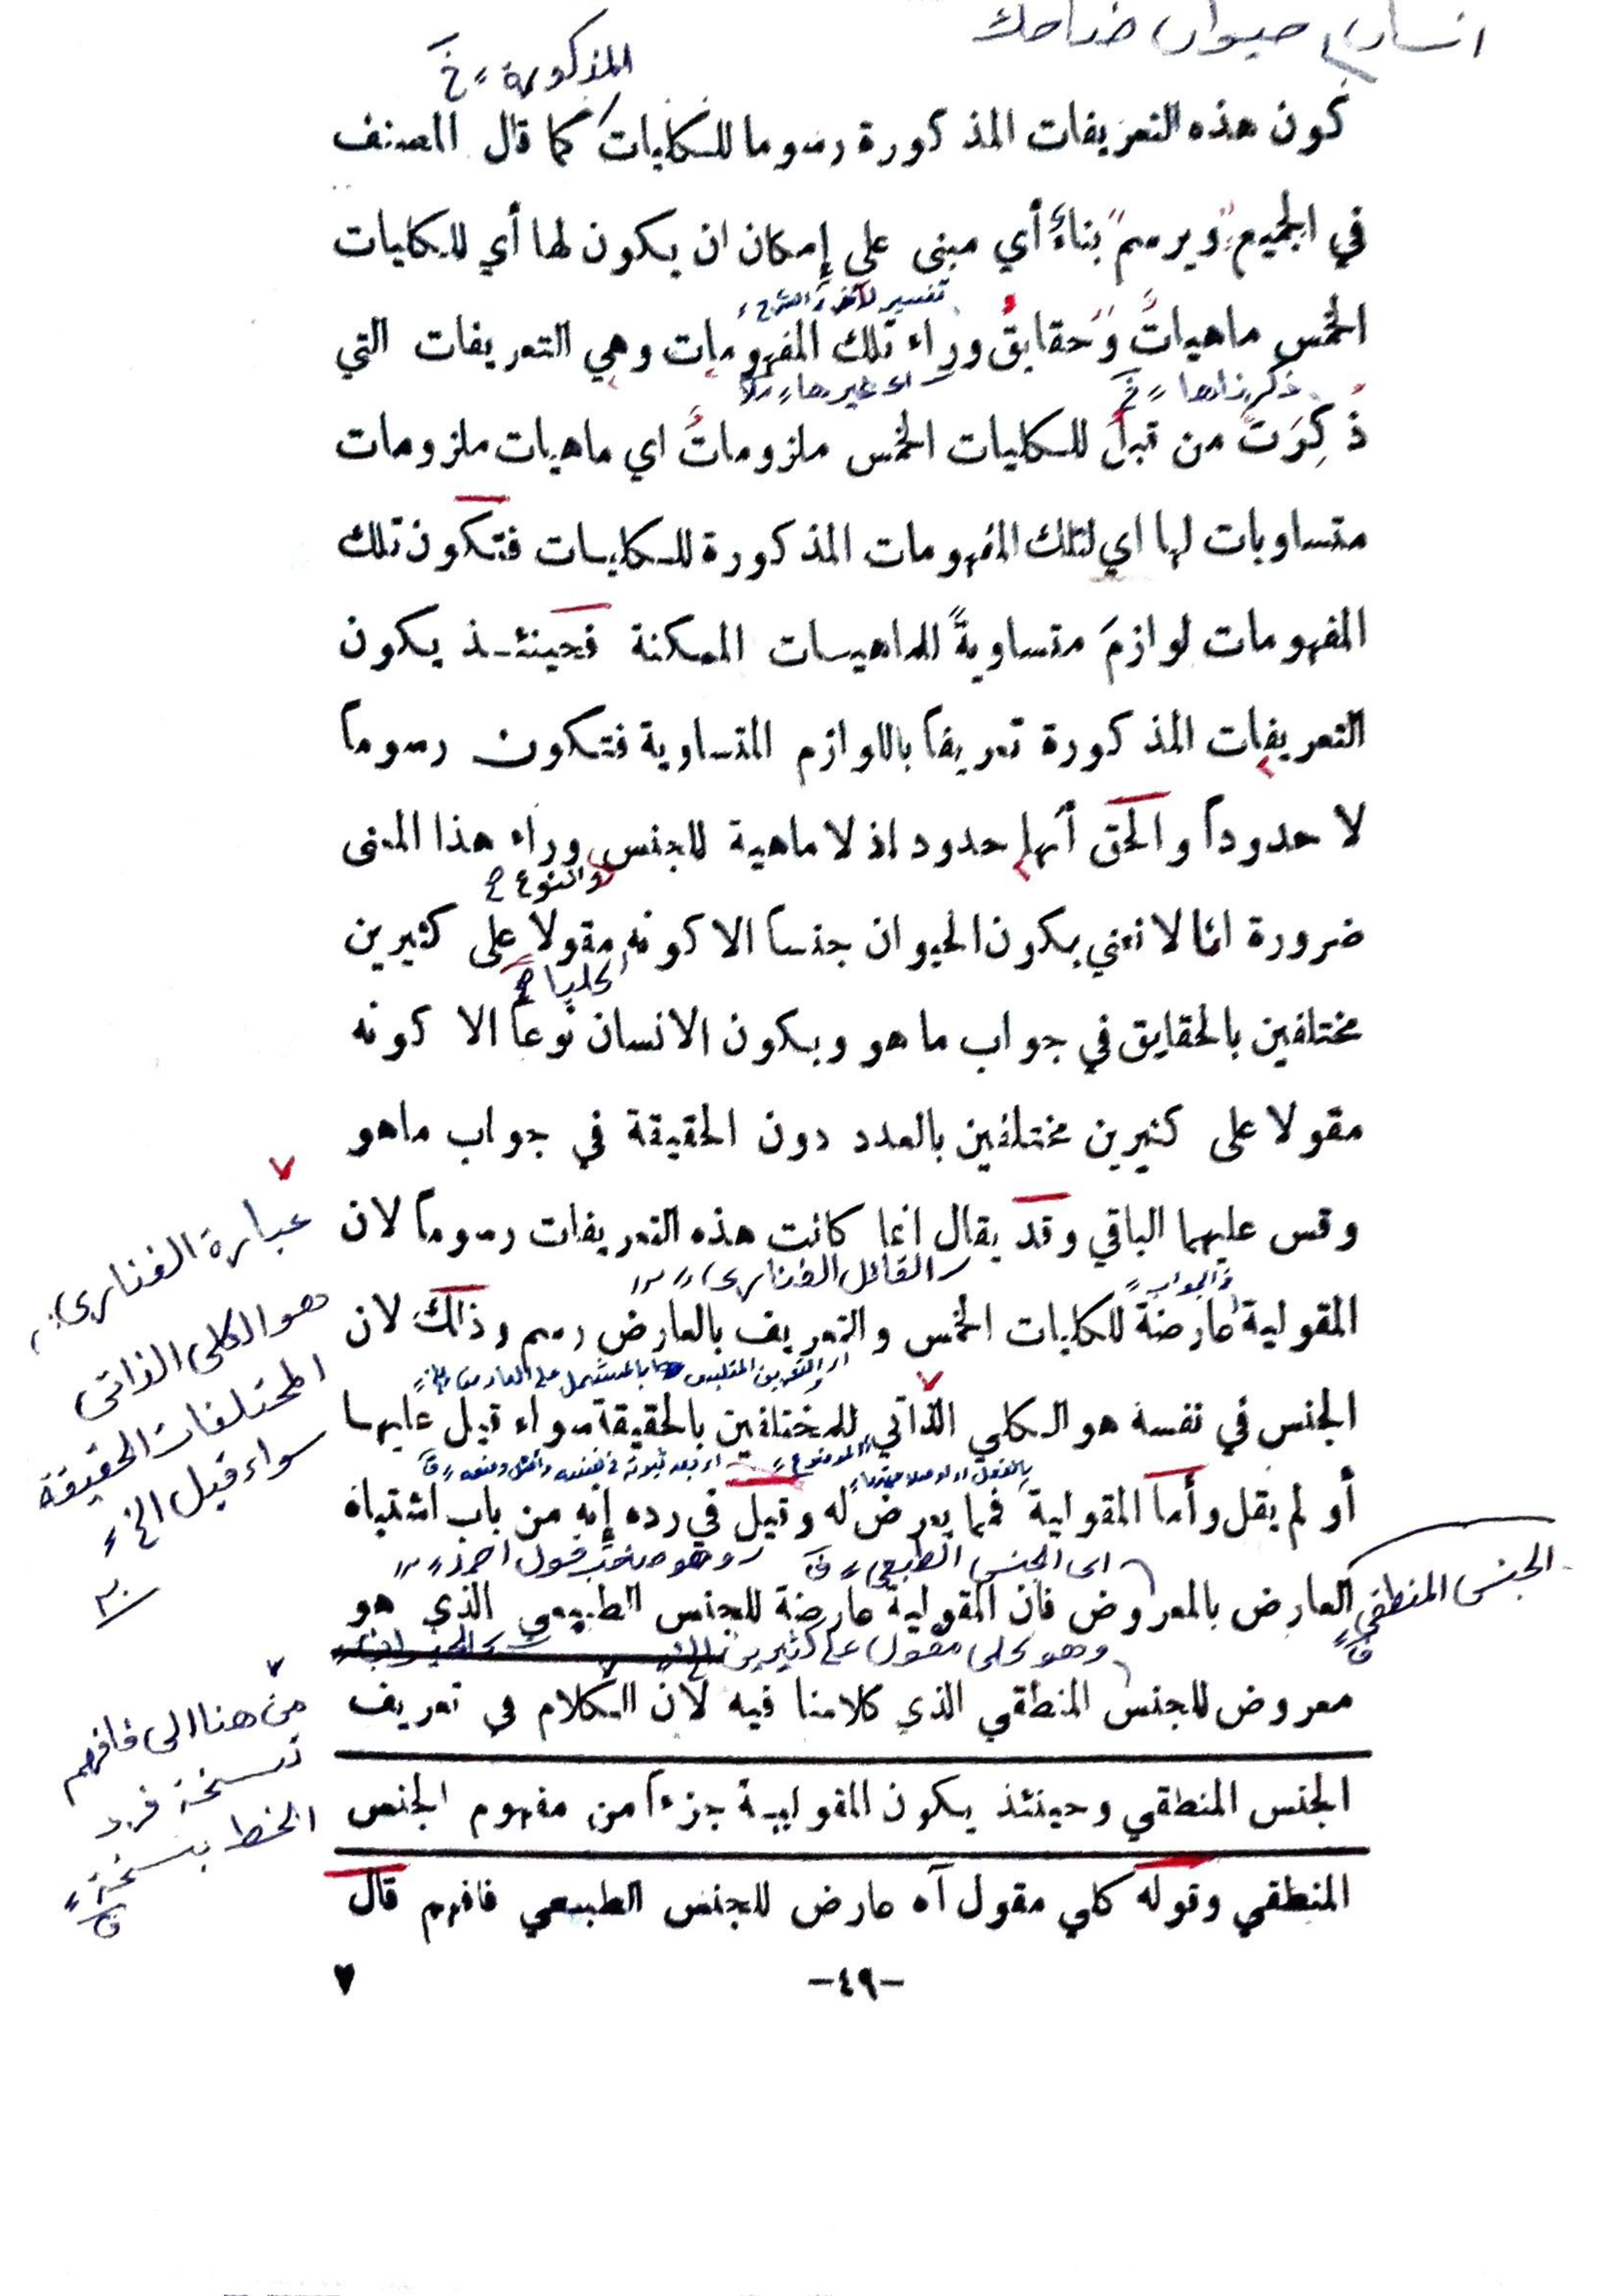 انسان حيوان ضاحك
المذكورة خ
كون هذه التعريفات المذكورة رسوما للكليات كما قال المصنف
في الجميع "ويرسم" بناءً أي مبنى على إمكان ان يكون لها أي للكليات
الخمس ماهياتٌ وَحقايقُ وراء تلك المفهومات وهي التعريفات التي
ذكرناها خ
اى غيرها
ذُكِرَت من قبلُ للكليات الخمس ملزوماتُ اي ماهيات ملزومات
متساويات لها اي لتلك المفهومات المذكورة للكليات فتكون تلك
المفهومات لوازمَ متساويةً للماهيات الممكنة فحينئذ يكون
التعريفات المذكورة تعريفاً باللوازم المتساوية فتكون رسوماً
لا حدوداً والحق أنها حدود اذ لا ماهية للجنس وراء هذا المعنى
والنوع
ضرورة انا لا نعني بكون الحيوان جنساً الا كونه مقولا على كثيرين
كليا
مختلفين بالحقايق في جواب ما هو وبكون الانسان نوعاً الا كونه
مقولا على كثيرين مختلفين بالعدد دون الحقيقة في جواب ماهو
وقس عليهما الباقي وقد يقال انما كانت هذه التعريفات رسوماً لان
القائل الفنارى
والجواب
المقولية عارضةٌ للكليات الخمس والتعريف بالعارض رسم وذلك لان
الجنس في نفسه هو الكلي الذاتي للمختلفين بالحقيقة سواء قيل عليها
أو لم يقل وأما المقولية فمما يعرض له وقيل في رده إنه من باب اشتباه
اى الجنس الطبعى
العارض بالمعروض فان المقولية عارضة للجنس الطبيعي الذي هو
وهو كلى مقول على كثيرين الخ
معروض للجنس المنطقي الذي كلامنا فيه لان الكلام في تعريف
الجنس المنطقي وحينئذ يكون المقولية جزءاً من مفهوم الجنس
المنطقي وقوله كلي مقول آه عارض للجنس الطبيعي فافهم قال
-٤٩-
٧
عبارة الفنارى
هو الكلى الذاتى
المختلفات الحقيقة
سواء قيل الخ
الجنس المنطقى
من هنا الى فافهم
نسخة فرد
الخط بنسخة